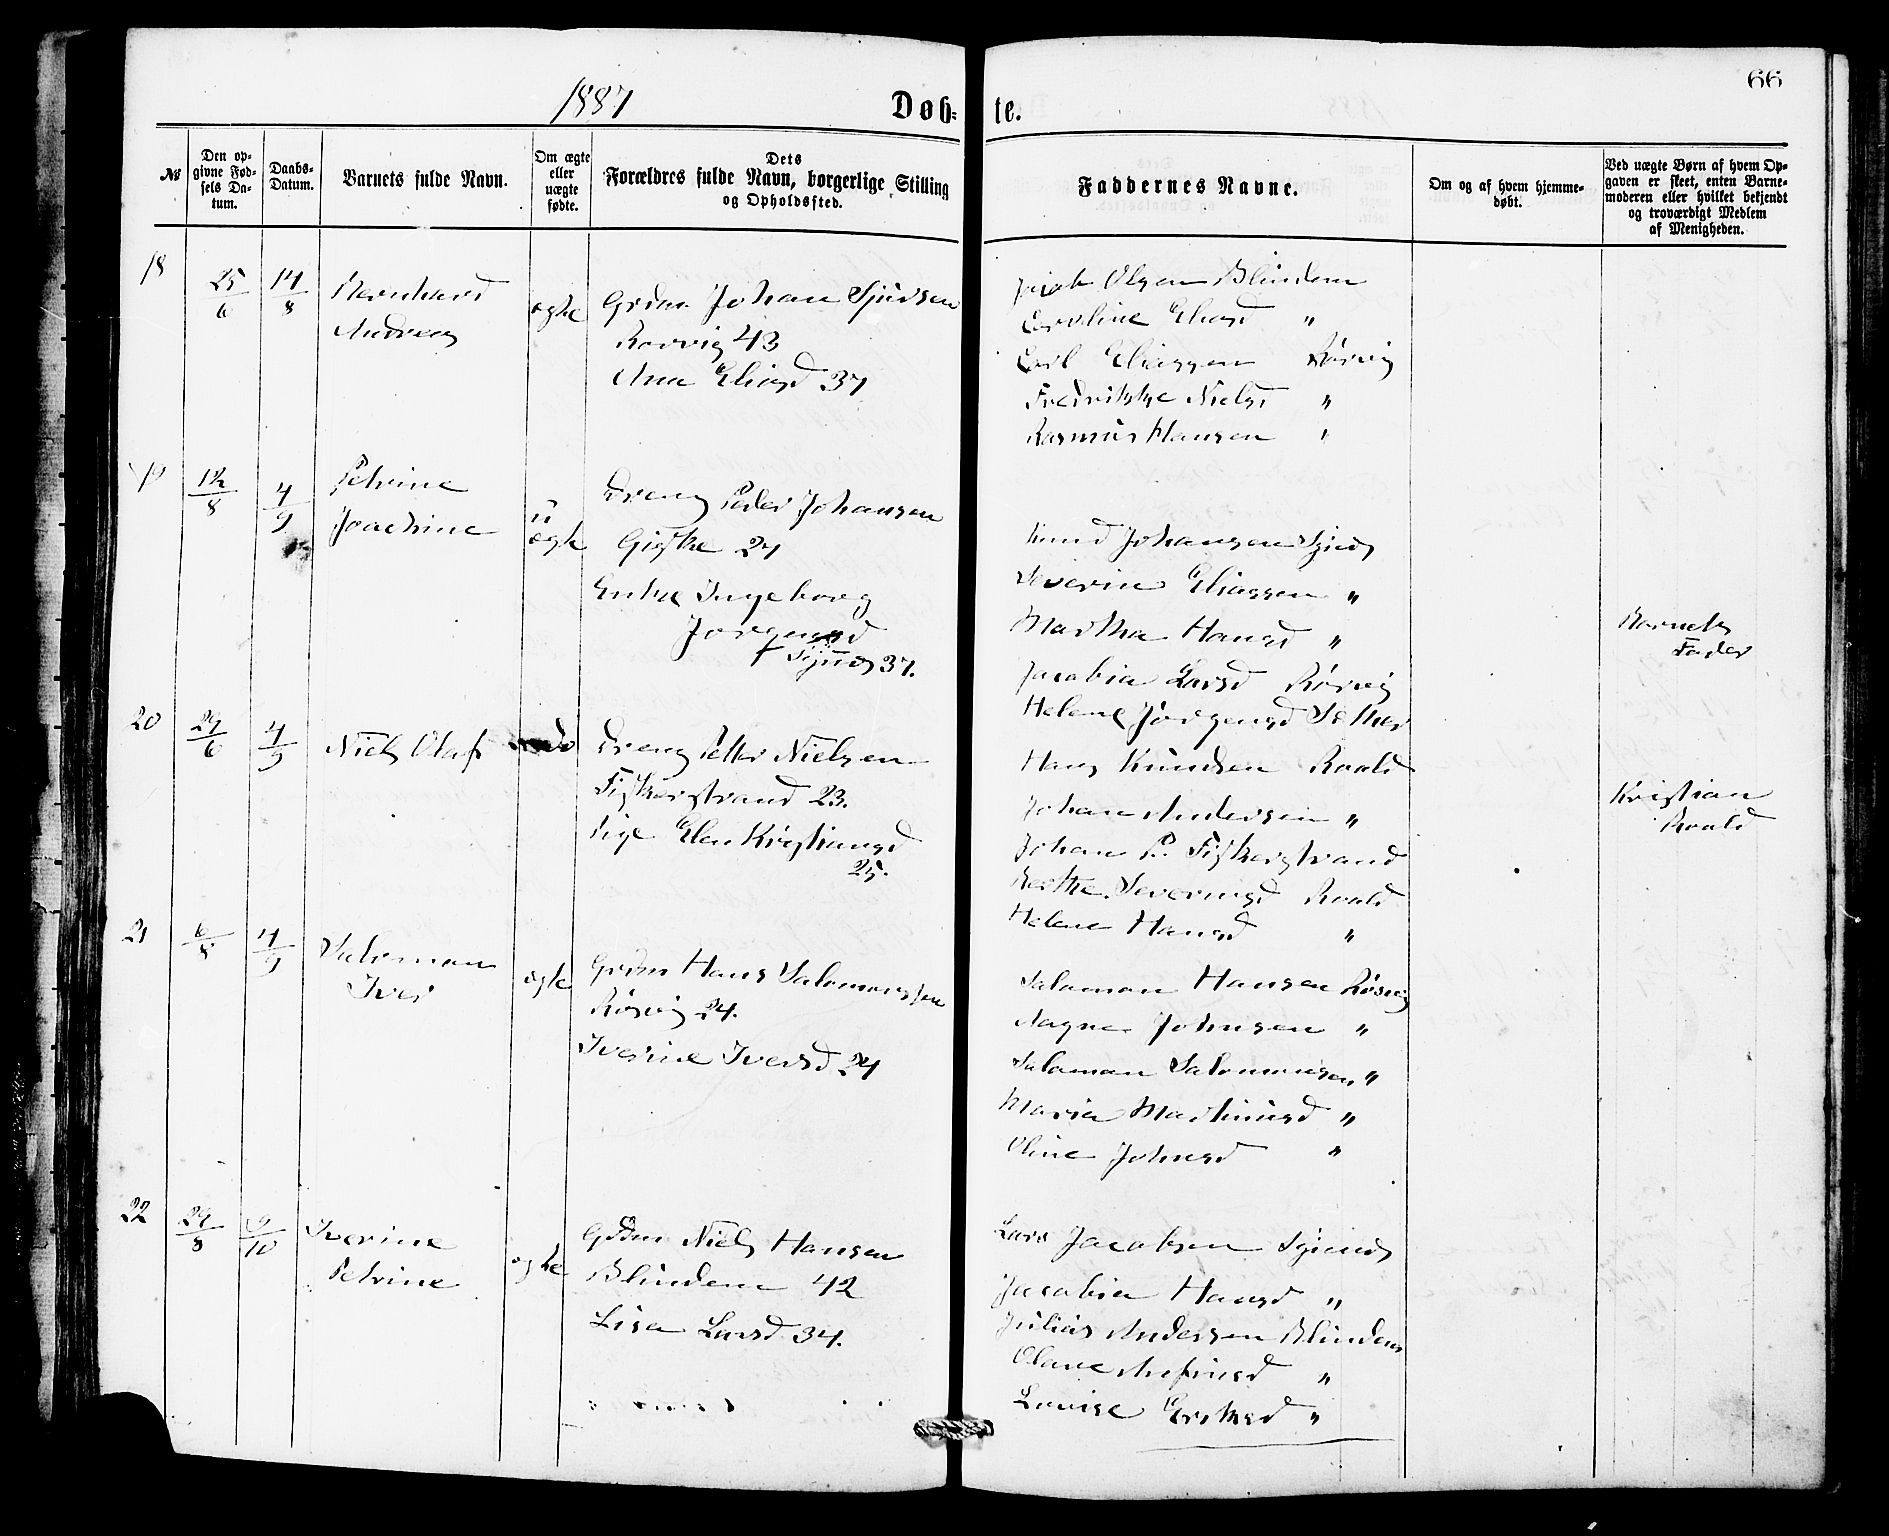 66
1887
Døb-
te.
№
Den op-
givne Fød-
sels Da-
tum.
Daabs-
Datum.
Barnets fulde Navn.
Om ægte
eller
uægte
fødte.
Dets
Forældres fulde Navn, borgerlige Stilling
og Opholdssted.
Faddernes Navne.
Om og af hvem hjemme-
døbt.
Ved uægte Børn af hvem Op-
gaven er skeet, enten Barne-
moderen eller hvilket bekjendt
og troværdigt Medlem
af Menigheden.
18
25/6
14/8
Bernhard
Andreas
ægte
Grdm Johan Sjursen
Rørvig 43
Ane Eliasd 37
Jacob Olsen Blindem
Caroline Eliasd "
Carl Eliassen Rørvig
Fredrikke Nielsd "
Rasmus Hansen "
19
12/8
4/9
Petrine
Joachine
u
ægte
Dreng Peder Johansen
Giske 24
Enke Ingeborg
Jørgensd
37.
Knud Johansen
Severin Eliassen "
Martha Hansd "
Jacobia Larsd Rørvig
Helene Jørgensd Sether
Barnets
Fader
20
29/6
4/9
Niels Olaf
do
Dreng Petter Nielsen
Fiskerstrand 23.
Pige Elen Kristiansd
25.
Hans Knudsen Roald
Johan Andersen "
Johan P. Fiskerstrand
Berthe Severinsd Roald
Helene Hansd "
Kristian
Roald
21
6/8
4/9
Salomon
Iver
ægte
Grdm Hans Salomonssen
Rørvig 24.
Iverine Iversd 24
Salomon Hansen Rørvig
Magne Johnsen "
Salomon Salomonsen "
Maria Martinusd "
Oline Johnsd "
22
29/8
9/10
Iverine
Petrine
ægte
Grdm Niels Hansen
Blindem 42
Lisa Larsd 34.
Lars Jacobsen
Jacobia Hansd "
Julius Andersen Blindem
Olave "
Lovise Eriksd "